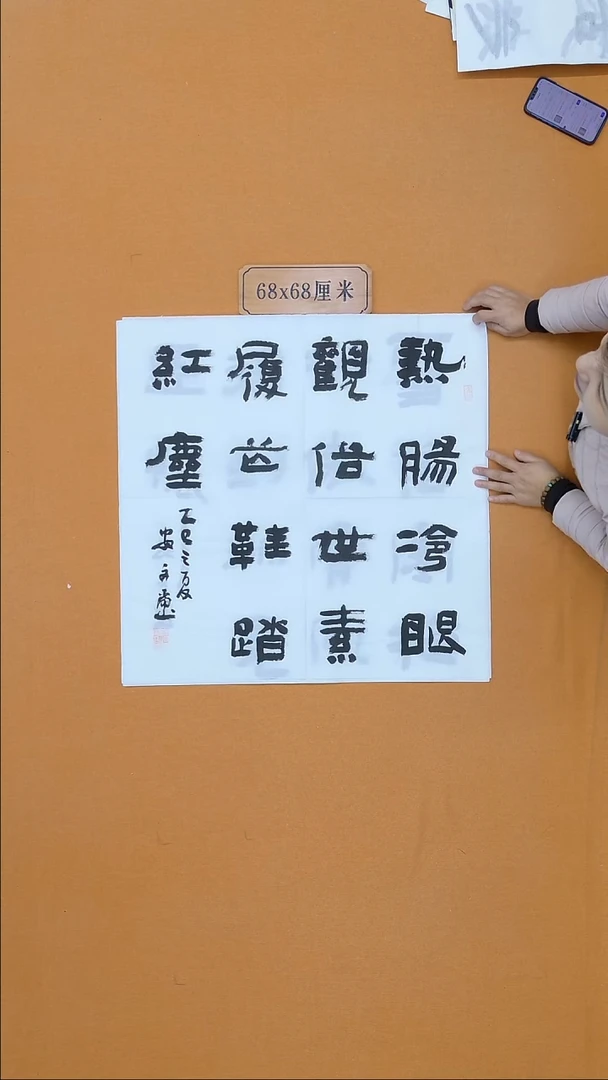 68x68厘米
熱腸冷眼
觀俗世素
履芒鞋踏
紅塵
乙巳之夏